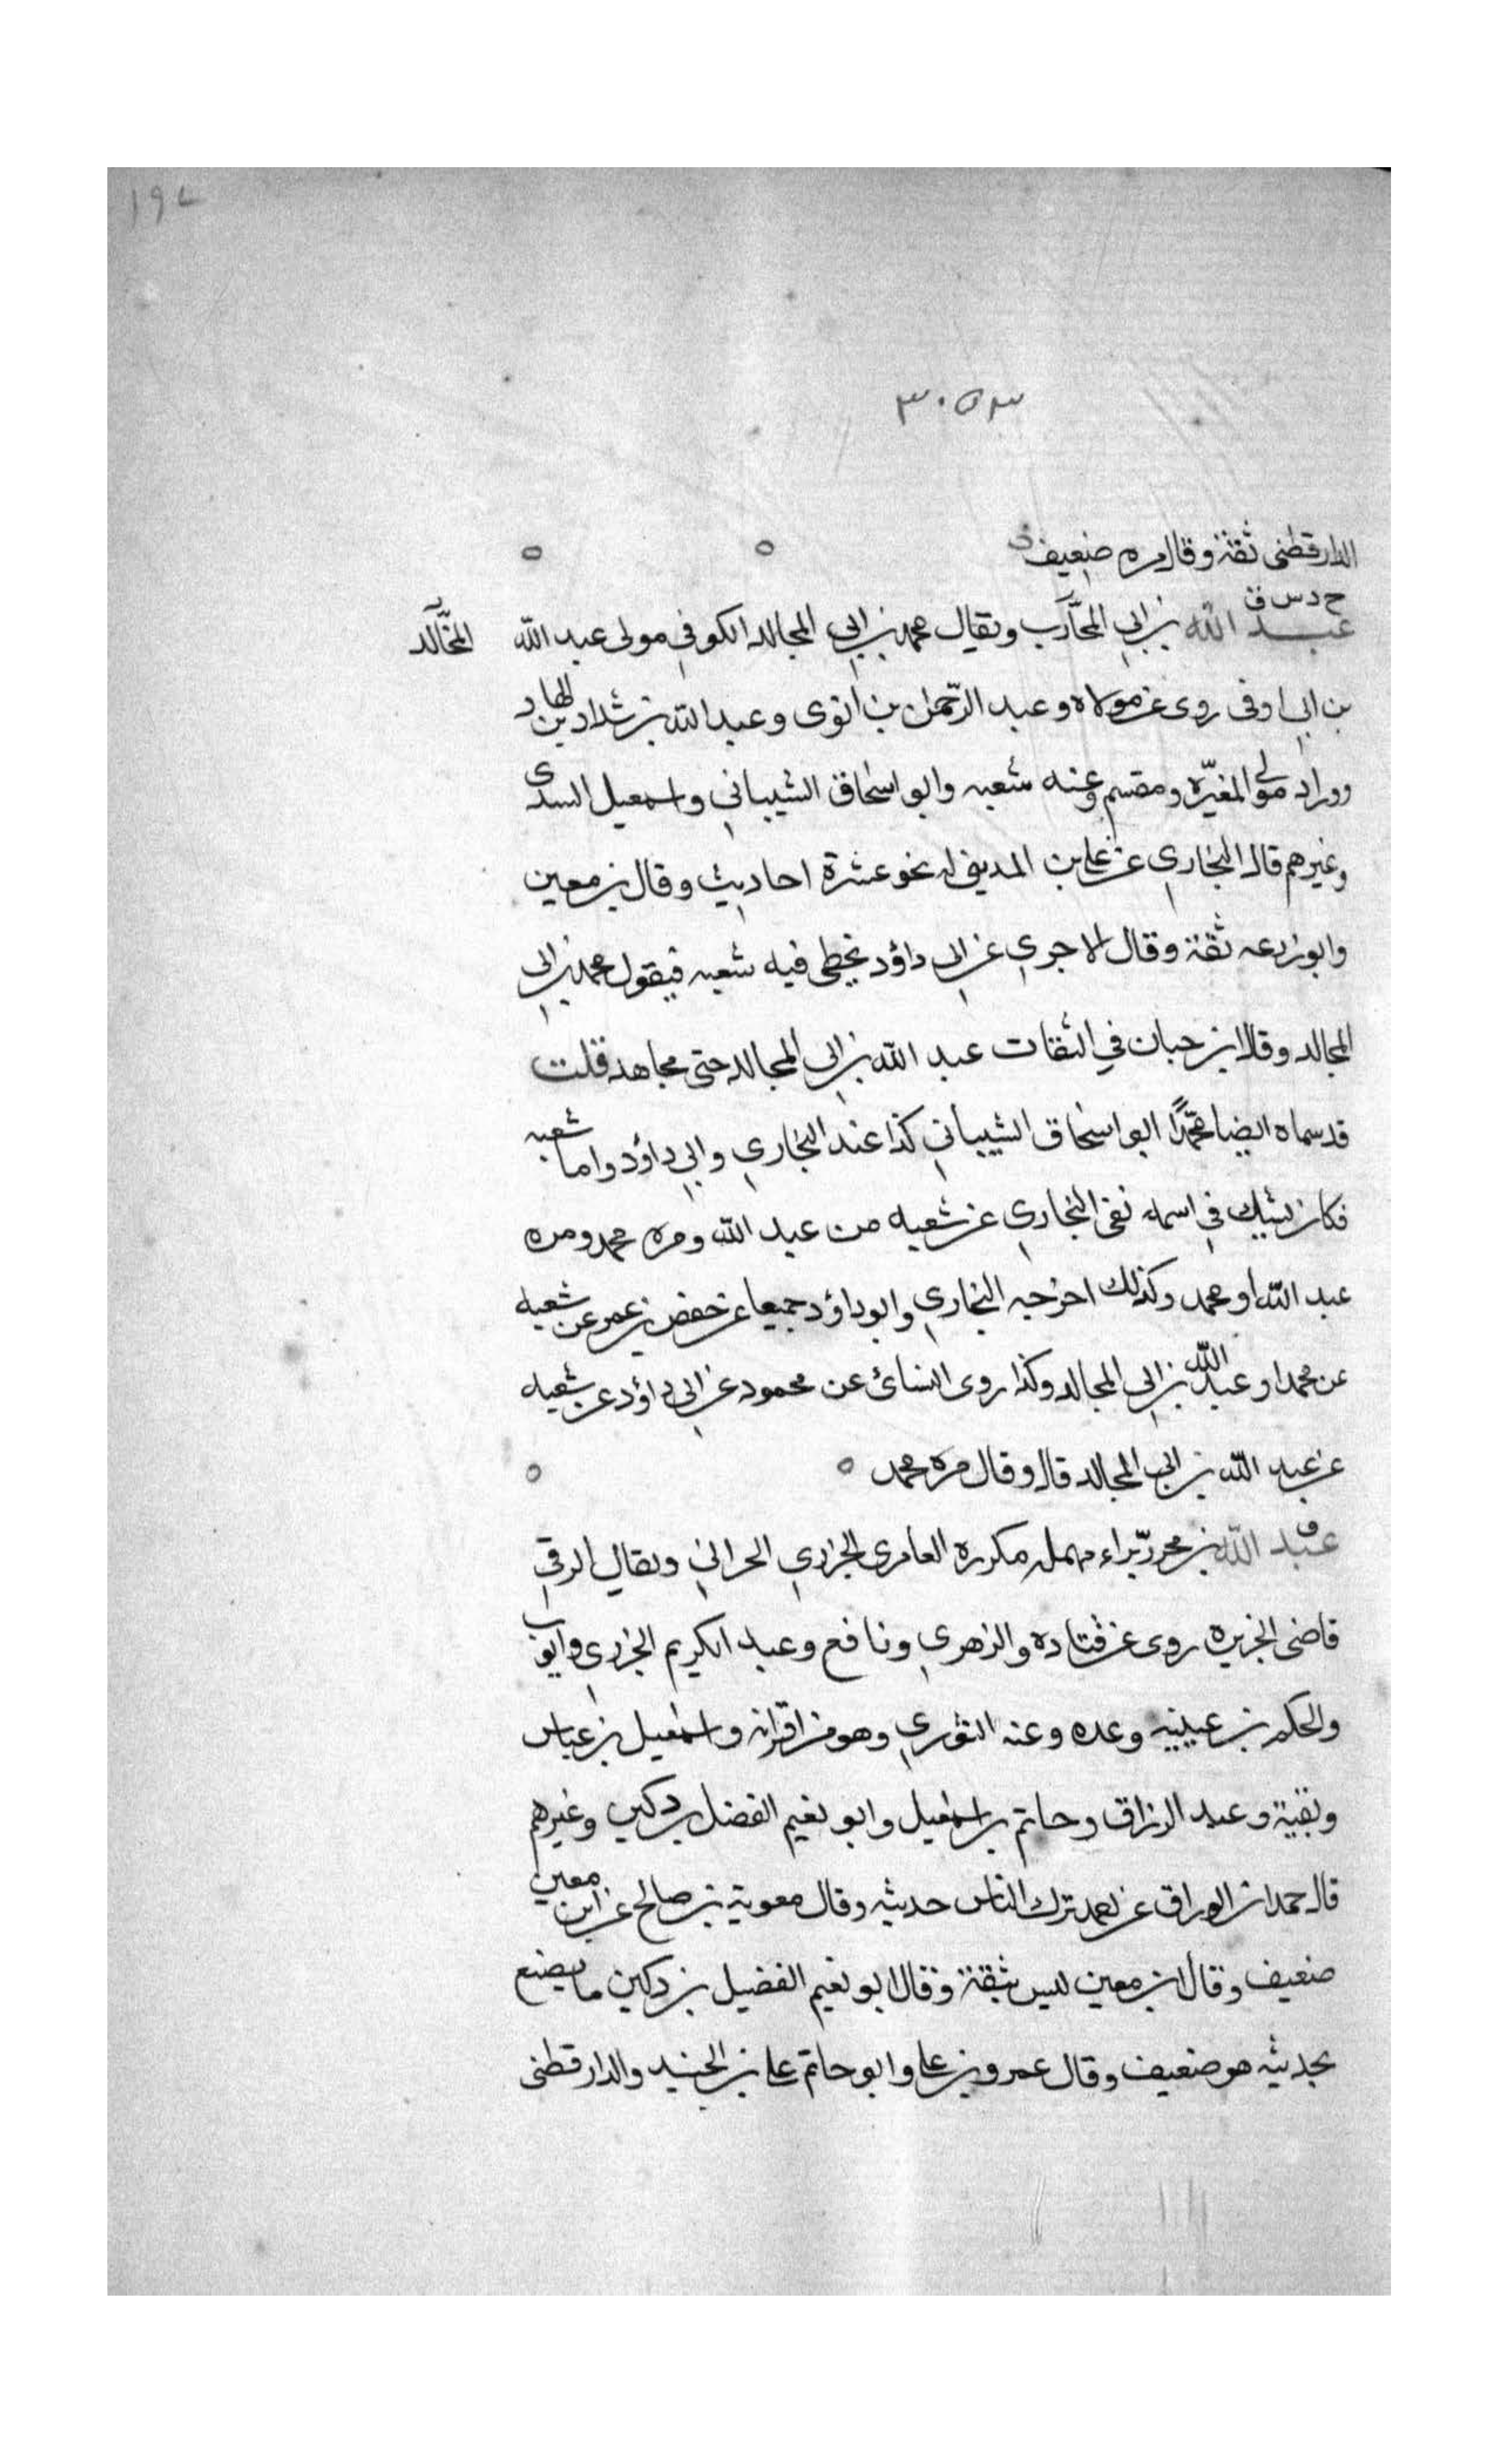 ١٩٧
٣٠٥٣
الدارقطنى ثقة وقال مره ضعيف
خ د س ق
عبد الله بن ابي المحارب ويقال محمد بن ابي المجالد الكوفي مولى عبد الله المجالد
بن ابي اوفى روى عن مولاه وعبد الرحمن بن ابزى وعبد الله بن شداد بن الهاد
ووراد مولى المغيره ومقسم وعنه شعبه وابو اسحاق الشيباني واسمعيل السدى
وغيرهم قال البخاري عن علي بن المديني له نحو عشرة احاديث وقال بن معين
وابو زرعه ثقة وقال الاجري عن ابي داؤد يخطى فيه شعبه فيقول محمد بن ابي
المجالد وقال ابن حبان في الثقات عبد الله بن ابي المجالد ختن مجاهد قلت
قد سماه ايضا محمدًا ابو اسحاق الشيباني كذا عند البخاري وابي داؤد واما شعبه
فكان يشك في اسمه نفى البخاري عن شعبه من عبد الله ومره محمد ومره
عبد الله او محمد وكذلك اخرجه البخاري وابو داؤد جميعا عن حفص بن عمر عن شعبه
عن محمد او عبد الله بن ابي المجالد وكذا روى النسائ عن محمود عن ابي داؤد عن شعبه
عن عبد الله بن ابي المجالد قال وقال مره محمد
ق
عبد الله بن محرر براء مهمله مكرره العامرى الجزري الحراني ويقال الرقي
قاضى الجزيره روى عن قتاده والزهري ونافع وعبد الكريم الجزرى وايوب
والحكم بن عيينيه وعده وعنه الثوري وهو من اقرانه واسمعيل بن عياس
وبقية وعبد الرزاق وحاتم بن اسمعيل وابو نعيم الفضل بن دكين وغيرهم
قال حمدان الوراق عن احمد ترك الناس حديثه وقال معوية بن صالح عن ابن معين
ضعيف وقال ابن معين ليس بثقة وقال ابو نعيم الفضيل بن دكين ما يصنع
بحديثه هو ضعيف وقال عمرو بن علي وابو حاتم علي بن الجنيد والدارقطنى